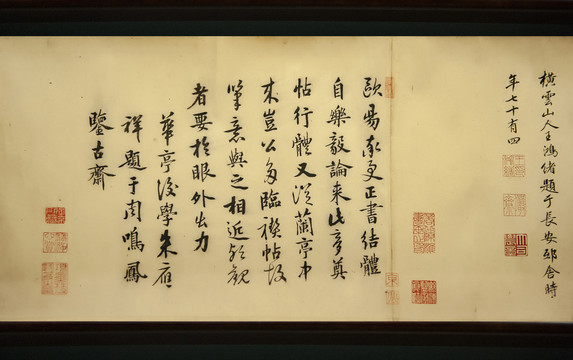 橫雲山人王鴻緒題于長安邸舍時
年七十有四
歐陽率更正書結體
自樂毅論來此夢奠
帖行體又從蘭亭中
來豈公多臨禊帖故
筆意與之相近耶觀
者要於眼外出力
華亭後學朱
祥題于周鳴鳳
鑒古齋